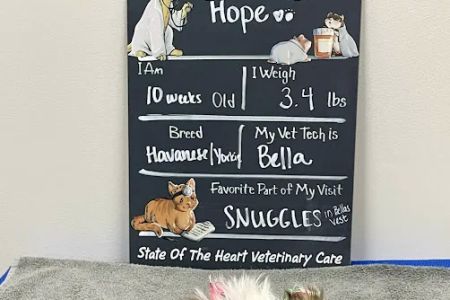 Hope.
I Am
10 weeks Old
I Weigh
3.4 lbs
Breed
Havanese/Yorkie
My Vet Tech is
Bella
Favorite Part of My Visit
SNUGGLES in Bellas vest
State Of The Heart Veterinary Care